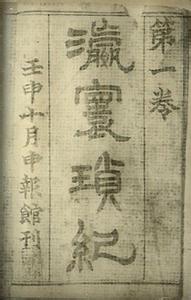 第一卷
瀛寰瑣紀
壬申十月申報館刊